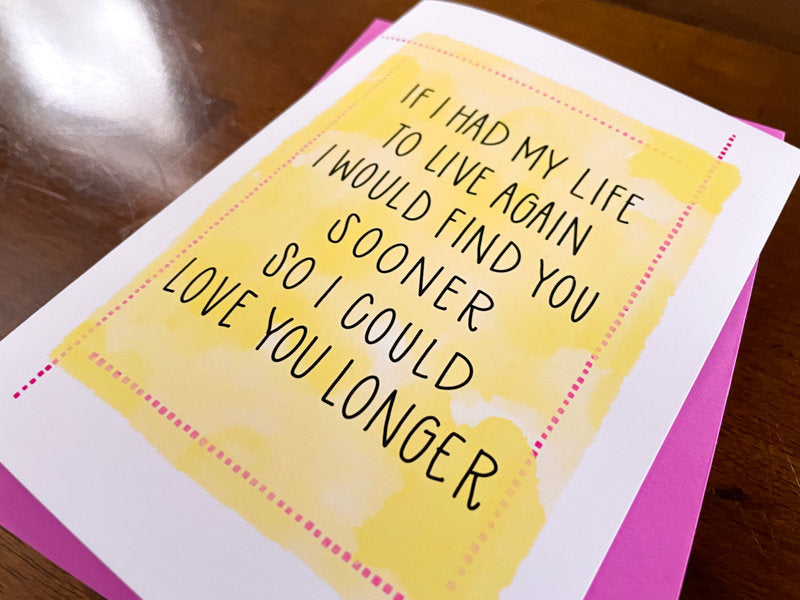 IF I HAD MY LIFE
TO LIVE AGAIN
I WOULD FIND YOU
SOONER
SO I COULD
LOVE YOU LONGER